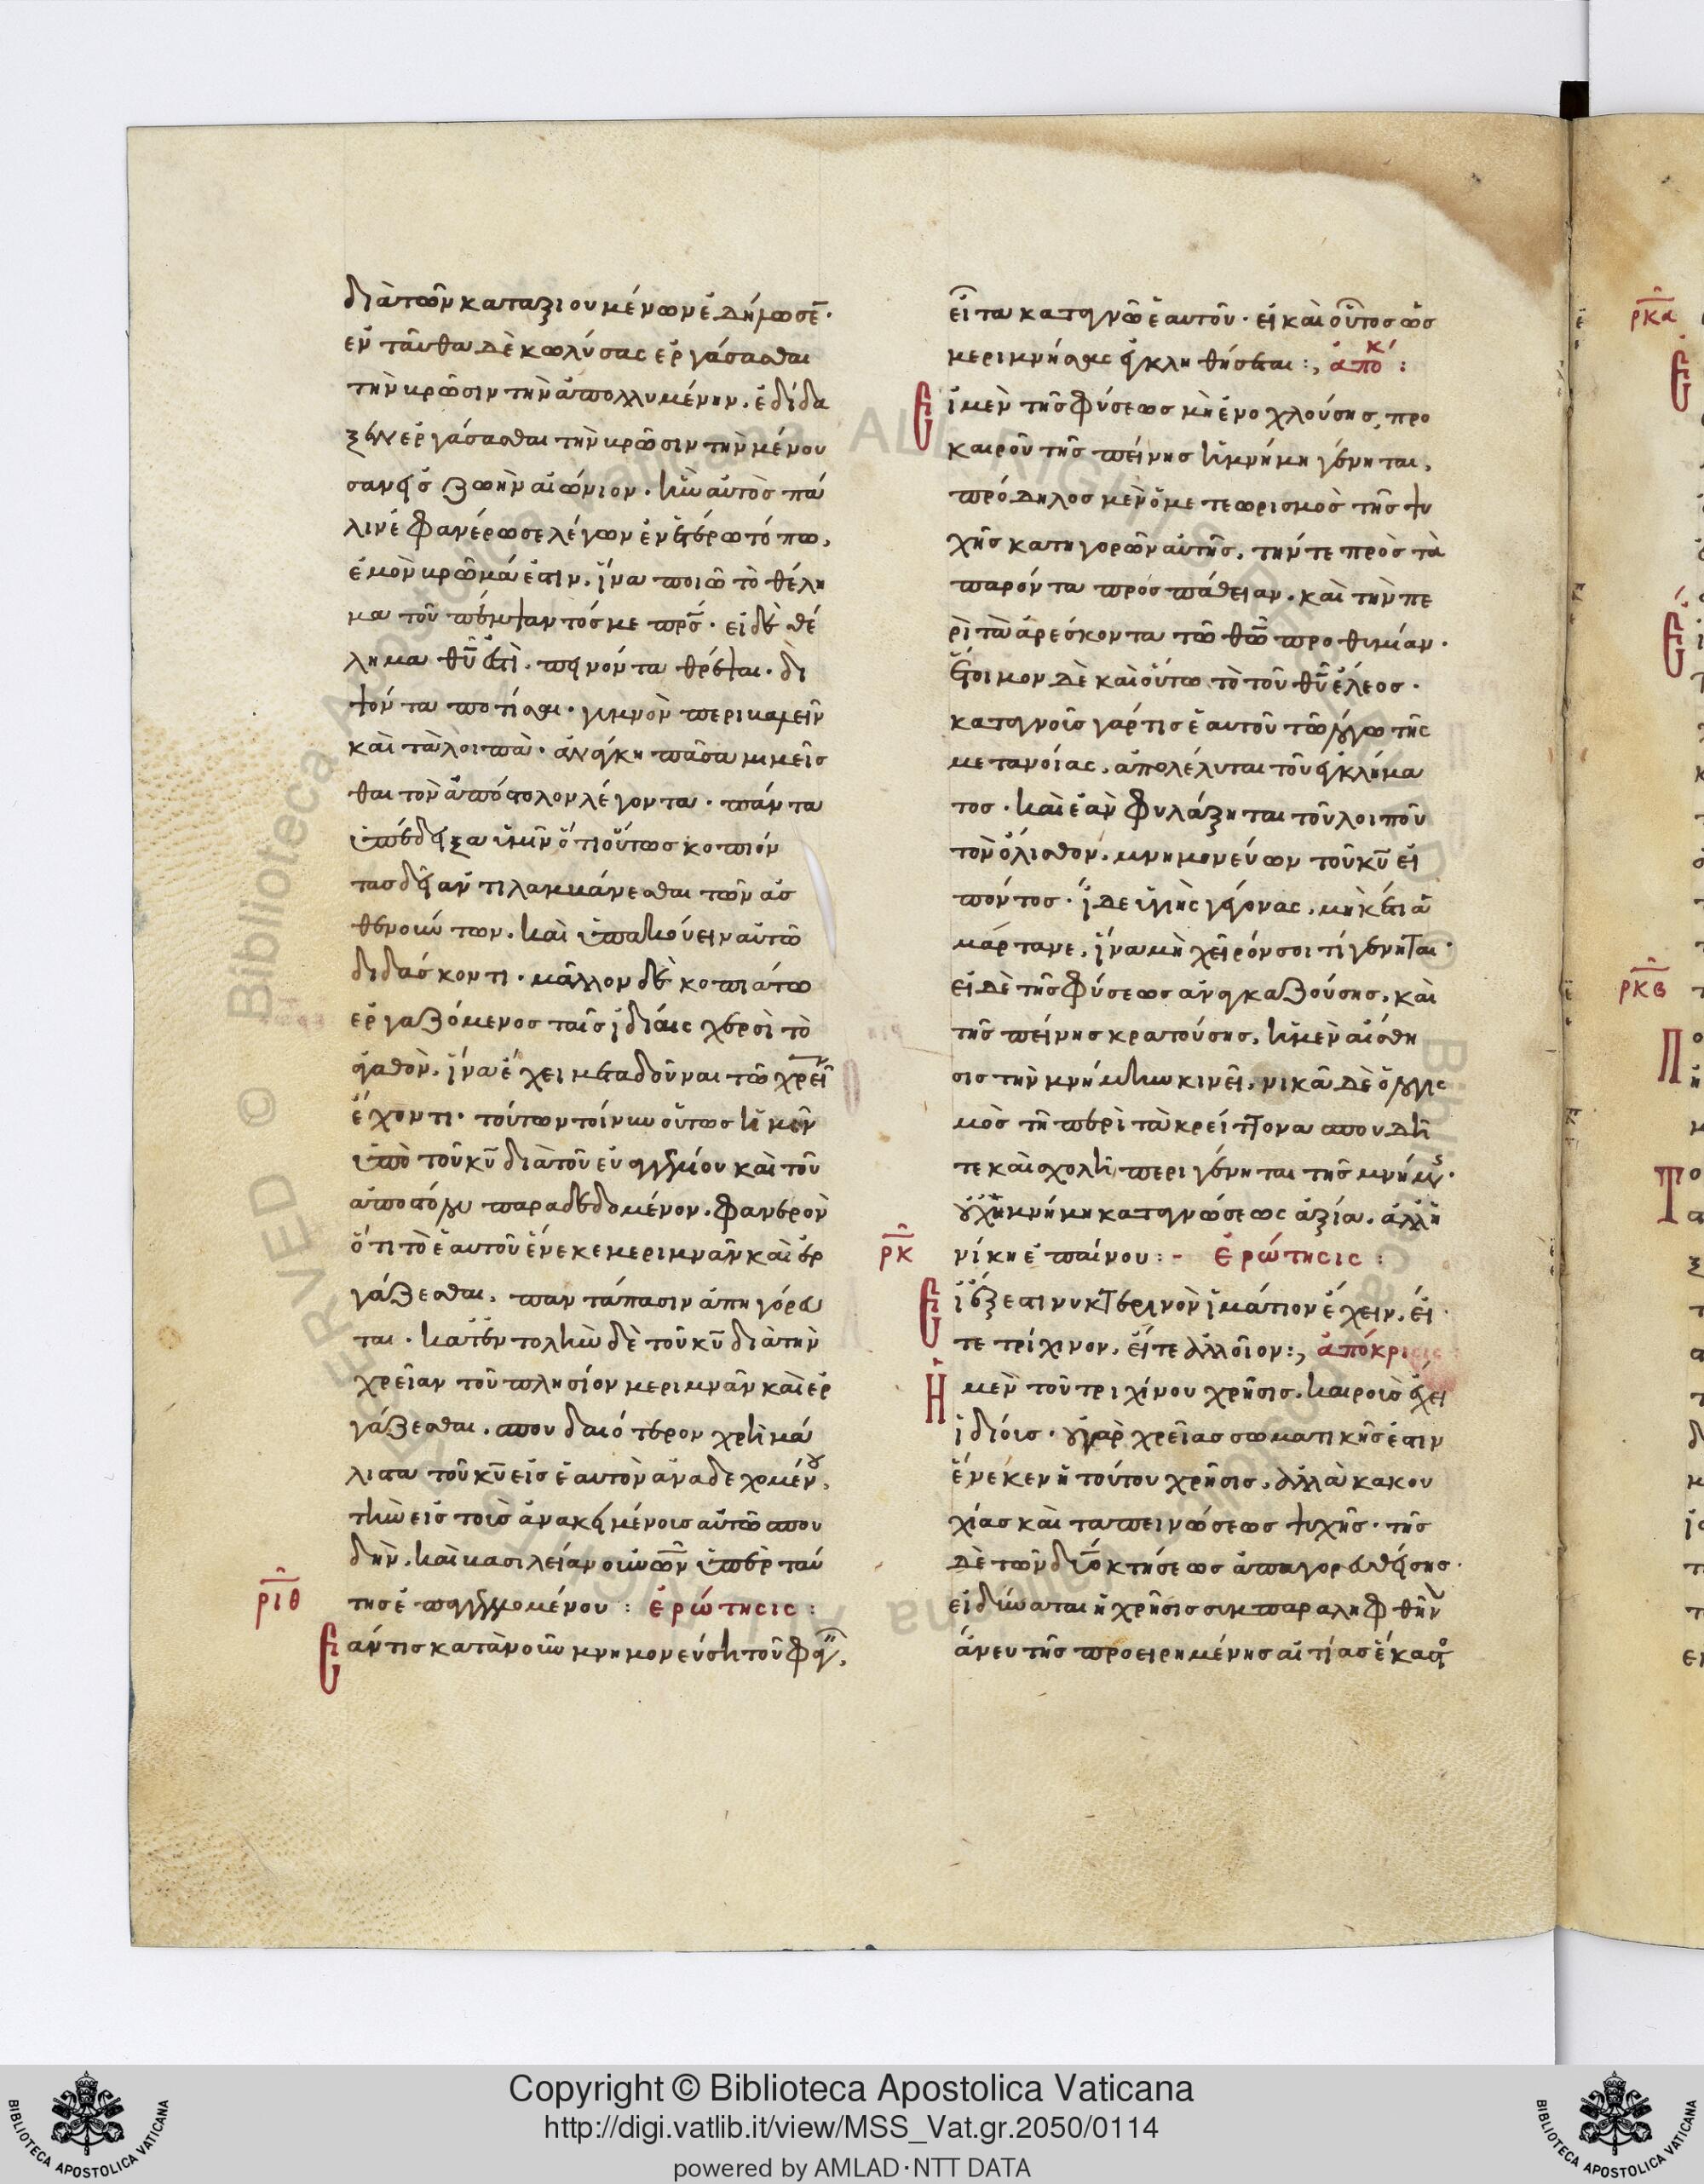 διὰ τῶν καταξιουμένων ἐδήμοσε̅·
ἐνταῦθα δὲ κωλύσας ἐργάσασθαι
τὴν βρῶσιν τὴν ἀπολλυμένην, ἐδίδα
ξεν ἐργάσασθαι τὴν βρῶσιν τὴν μένου
σαν εἰς ζωὴν αἰώνιον· ἣν αὐτὸς πά
λιν ἐφανέρωσε λέγων ἐν ἑτέρω τόπω,
ἐμὸν βρῶμά ἐστιν, ἵνα ποιῶ τὸ θέλη
μα τοῦ πέμψαντός με πρ̅ς· εἰ δὲ θέ
λημα θ̅υ ἐστὶ, πεινόντα θρέψαι· δι
ψόντα ποτίσαι· γυμνὸν περιβαλεῖν
καὶ τὰ λοιπὰ· ἀνάγκη πᾶσα μιμεῖσ
θαι τὸν ἀπόστολον λέγοντα· πάντα
ὑπέδειξα ὑμῖν ὅτι οὕτως κοπιόν
τας δεῖ ἀντιλαμβάνεσθαι τῶν ἀσ
θενούντων, καὶ ὑπακούειν αὐτῶ
διδάσκοντι· μᾶλλον δὲ κοπιάτω
ἐργαζόμενος ταῖς ἰδίαις χερσὶ τὸ
ἀγαθὸν, ἵνα ἔχει μεταδοῦναι τῶ χρεί
ἔχοντι· τούτων τοίνυν οὕτως ἡμῖν
ὑπὸ τοῦ κ̅υ διὰ τοῦ εὐαγγελίου καὶ τοῦ
ἀποστόλου παραδεδομένον, φανερὸν
ὅτι τὸ ἑαυτοῦ ἕνεκε μεριμνᾶν καὶ ἐρ
γάζεσθαι, παντάπασιν ἀπηγόρευ
ται· κατ' ἐντολὴν δὲ τοῦ κ̅υ διὰ τὴν
χρείαν τοῦ πλησίον μεριμνᾶν καὶ ἐρ
γάζεσθαι, σπουδαιότερον χρὴ μά
λιστα τοῦ κ̅υ εἰς ἑαυτὸν ἀναδεχομένου,
τὴν εἰς τοὺς ἀνακειμένοις αὐτῶ σπου
δὴν, καὶ βασιλείαν οὐνῶν ὑπὲρ ταύ
ρ̅ιθ τῆς ἐπαγγελλομένου : ἐρώτησις :
Ἐάν τις κατὰ νοῦν μνημονεύση τοῦ φαγεῖν,
εἶτα καταγνῶ ἑαυτοῦ· εἰ καὶ οὗτος ὡς
μεριμνήσας ἐγκληθήσεται :, ἀποκ :
Εἰ μὲν τῆς φύσεως μὴ ἐνοχλούσης, προ
καιροῦ τῆς πείνης ἡ μνήμη γένηται,
πρόδηλος μὲν ὁ μετεωρισμὸς τῆς ψυ
χῆς κατηγορῶν αὐτῆς, τήν τε πρὸς τὰ
παρόντα προσπάθειαν, καὶ τὴν πε
ρὶ τὰ ἀρέσκοντα τῶ θ̅ω προθυμίαν·
ἕτοιμον δὲ καὶ οὕτω τὸ τοῦ θ̅υ ἔλεος·
καταγνοὺς γάρ τις ἑαυτοῦ τῶ λόγω τῆς
μετανοίας, ἀπολέλυται τοῦ ἐγκλήμα
τος· καὶ ἐὰν φυλάξηται τοῦ λοιποῦ
τὸν ὄλισθον, μνημονεύων τοῦ κ̅υ εἰ
πόντος· ἴδε ὑγιὴς γέγονας, μηκέτι ἁ
μάρτανε, ἵνα μὴ χεῖρόν σοι τί γένηται·
εἰ δὲ τῆς φύσεως ἀναγκαζούσης, καὶ
τῆς πείνης κρατούσης, ἡ μὲν αἴσθη
σις τὴν μνήμην κινεῖ, νικᾶ δὲ ὁ λογισ
μὸς τῆ περὶ τὰ κρείττονα σπουδῆ
τε καὶ σχολῆ περιγένηται τῆς μνήμης·
οὐχ ἡ μνήμη καταγνώσεως ἀξία, ἀλλ' ἡ
ρ̅κ νίκη ἐπαίνου :- ἐρώτησις :
Εἰ ἔξεστι νυκτερινὸν ἱμάτιον ἔχειν, εἴ
τε τρίχινον, εἴτε ἀλλοῖον :, ἀπόκρισις
Ἡ μὲν τοῦ τριχίνου χρῆσις, καιροὺς ἔχει
ἰδίοις· οὐ γὰρ χρείας σωματικῆς ἐστιν
ἕνεκεν ἡ τούτου χρῆσις, ἀλλὰ κακου
χίας καὶ ταπεινώσεως ψυχῆς· τῆς
δὲ τῶν δύο κτήσεως ἀπαγορευθείσης·
εἰ δύναται ἡ χρῆσις συμπαραληφθῆναι
ἄνευ τῆς προειρημένης αἰτίας ἕκαστος
ρ̅κα
ρ̅κβ